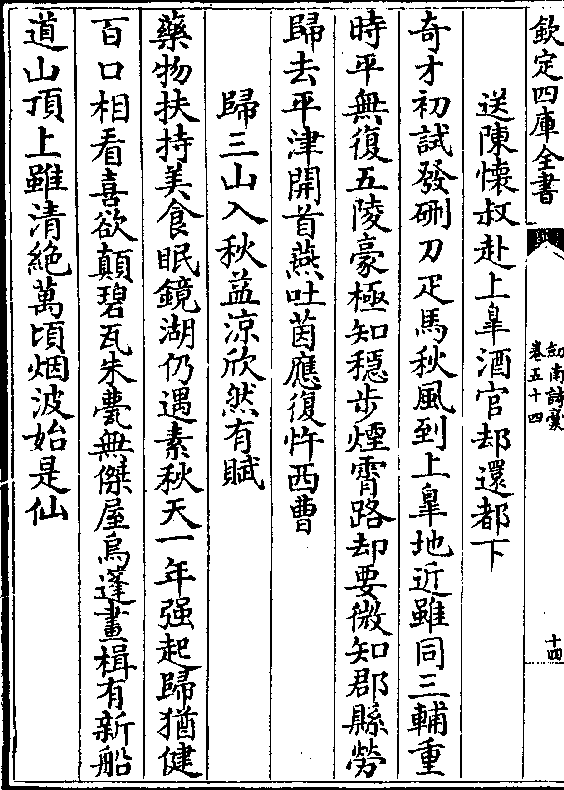 欽定四庫全書
劒南詩藁
卷五十四
十四
送陳懷叔赴上臯酒官却還都下
奇才初試發硎刀疋馬秋風到上臯地近雖同三輔重
時平無復五陵豪極知穩步煙霄路却要微知郡縣勞
歸去平津開首燕吐茵應復忤西曹
歸三山入秋益涼欣然有賦
藥物扶持美食眠鏡湖仍遇素秋天一年强起歸猶健
百口相看喜欲顛碧瓦朱甍無傑屋烏蓬畫楫有新船
道山頂上雖清絶萬頃烟波始是仙